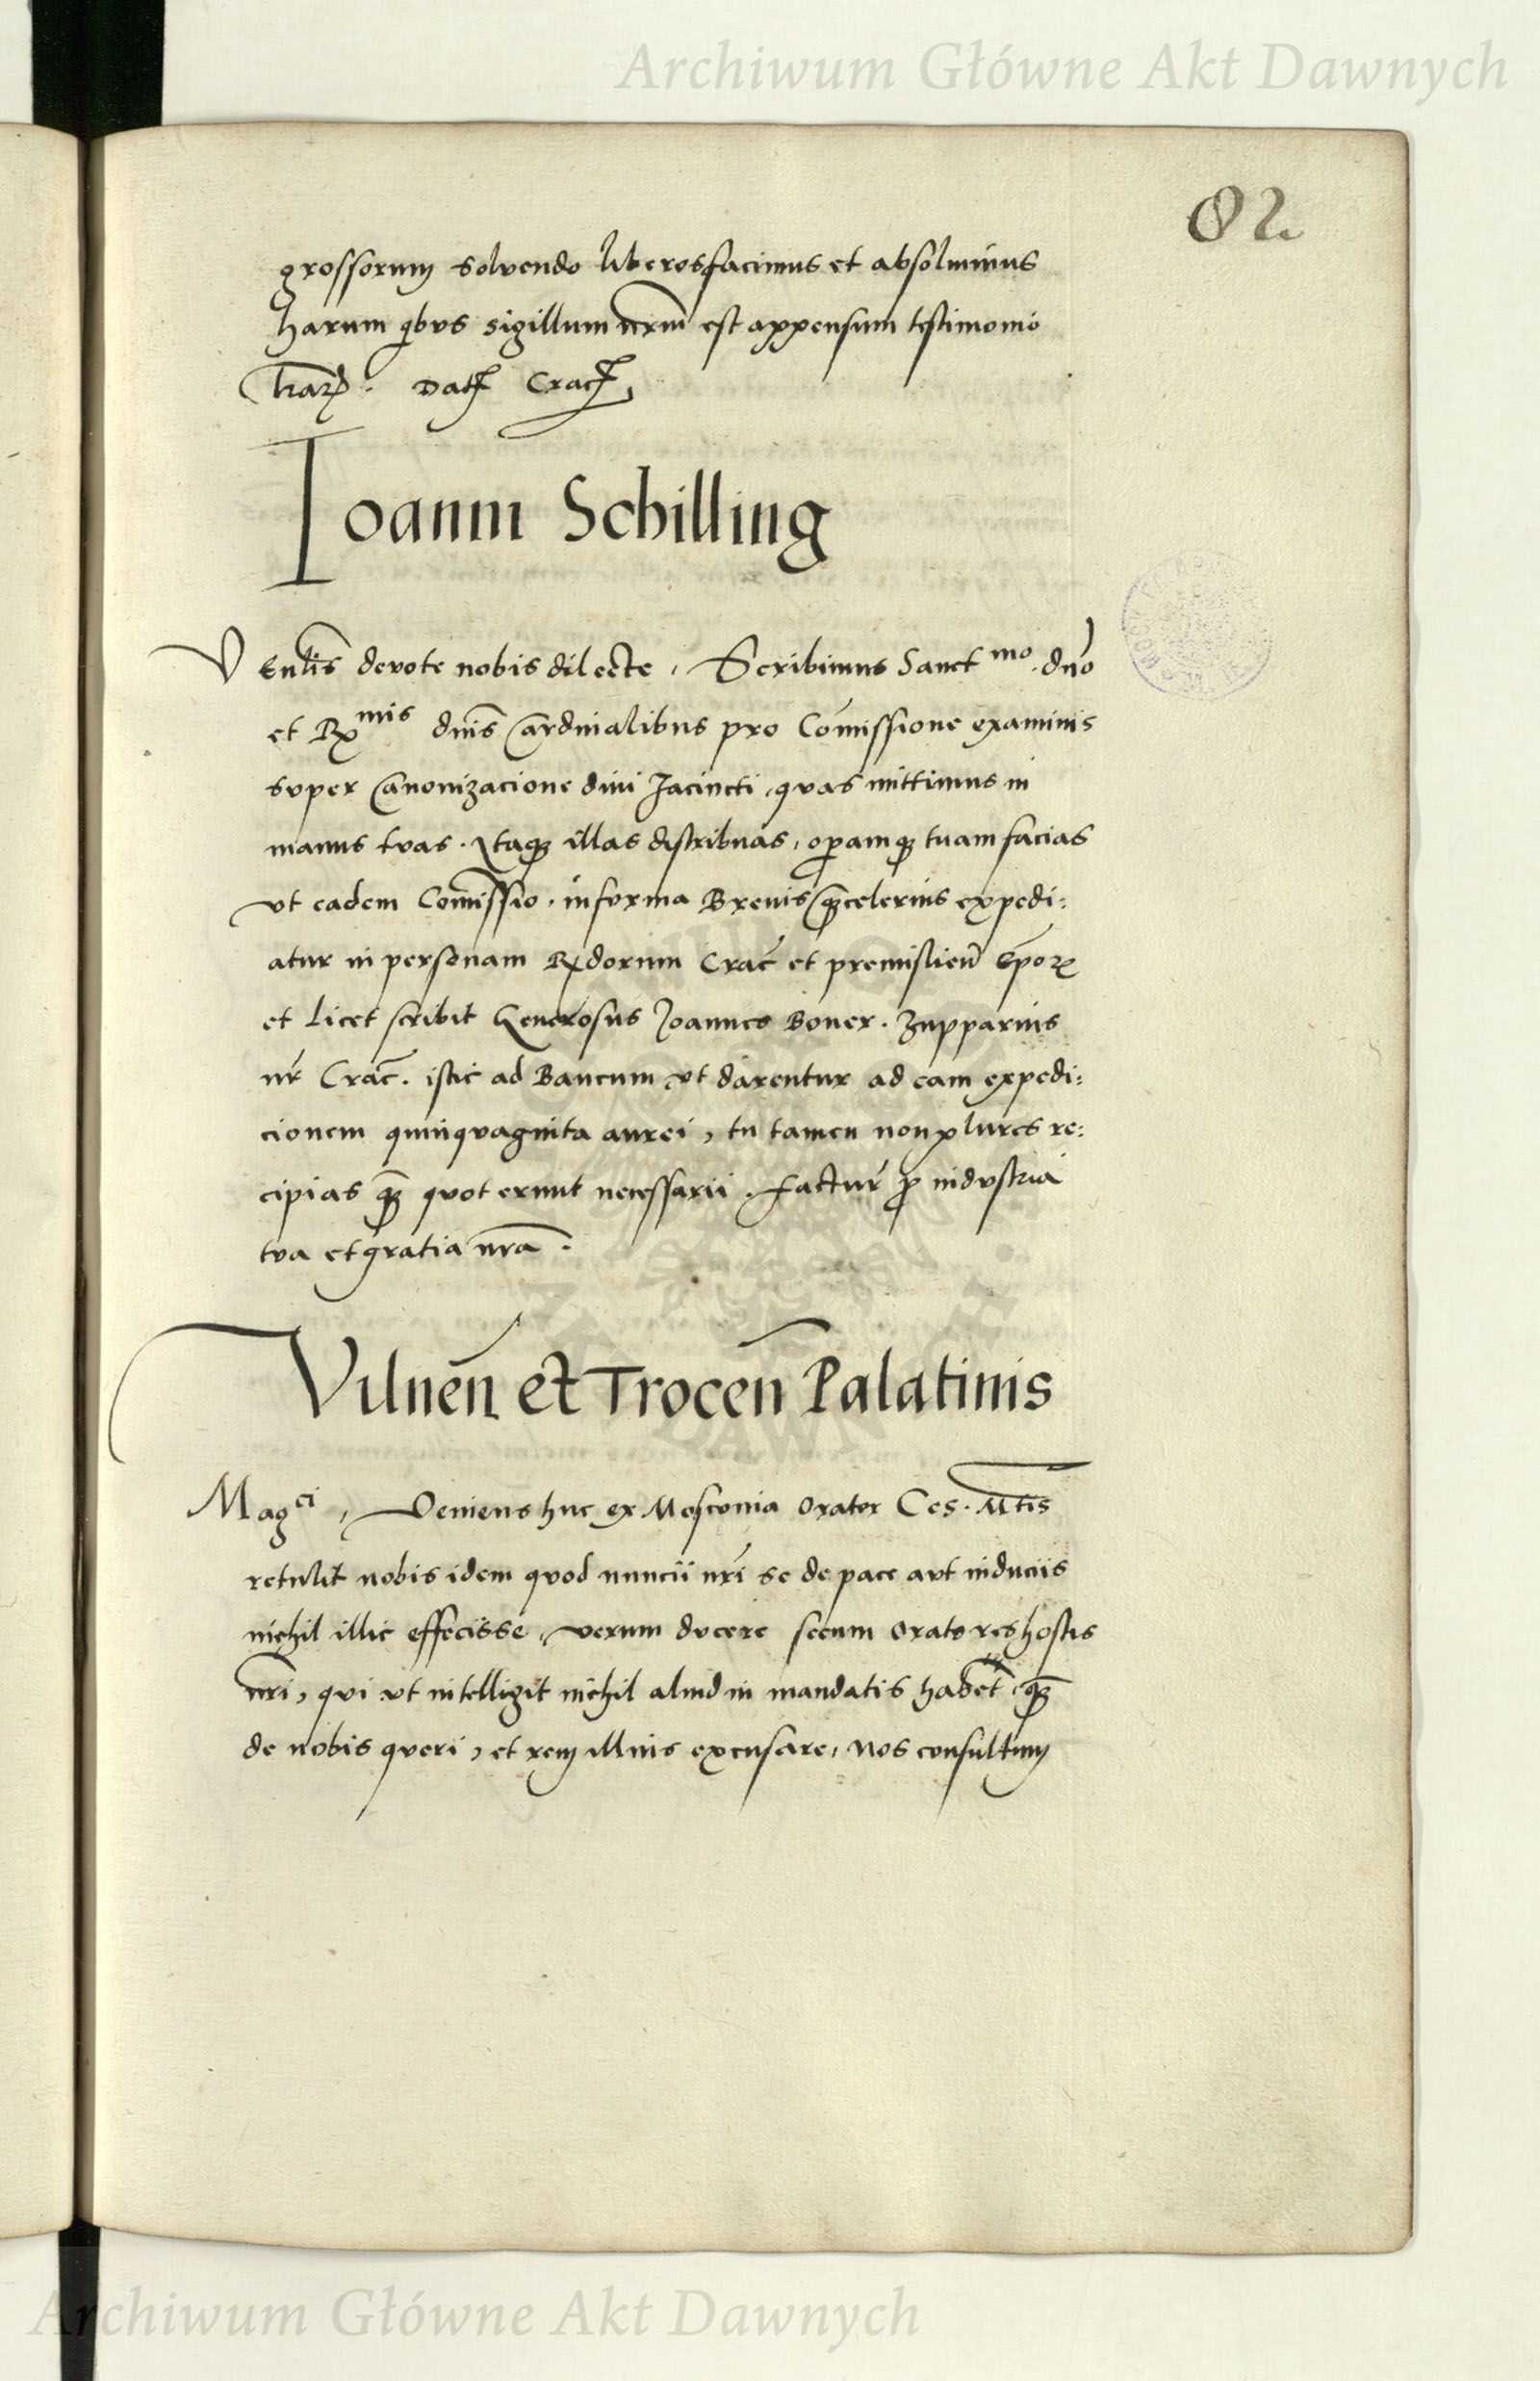 Archiwum Główne Akt Dawnych
82
grossorum solvendo liberos facimus et absolvimus
harum qbus sigillum nrm̄ est appensum testimonio
l̄rar. Dat Crac
Ioanni Schilling
Venlis devote nobis dilecte, Scribimus Sanct mo. dno
et R mis dnis Cardinalibus pro Comissione examinis
super Canonizacione divi Jacincti, quas mittimus in
manus tuas. Itaq illas distribuas, opamq tuam facias
ut eadem Comissio. in forma Brevis q celerius expedi:
atur in personam Rdorum Crac et premislien Epor
et licet scribit Generosus Joannes Boner. Zupparius
nr Crac. istic ad Bancum ut darentur ad eam expedi:
cionem quinquaginta aurei, tu tamen non plures re:
cipias q quot erunt necessarii. factur p industria
tua et gratia nra.
Vilnen̄ et Trocen̄ Palatinis
Mag ci, Veniens huc ex Mosconia Orator Ces. Mtis
retulit nobis idem quod nuncii nri se de pace aut induciis
nichil illic effecisse, verum ducere secum Oratores hostis
nri, qui ut intelligit nichil aliud in mandatis habet q
de nobis queri, et rem illius excusare, Nos consultum
Archiwum Główne Akt Dawnych